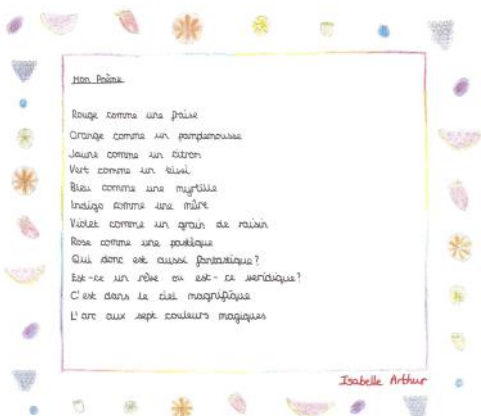 Mon Poème
Rouge comme une fraise
Orange comme un pamplemousse
Jaune comme un citron
Vert comme un kiwi
Bleu comme une myrtille
Indigo comme une mûre
Violet comme un grain de raisin
Rose comme une pastèque
Qui donc est aussi fantastique?
Est-ce un rêve ou est-ce veridique?
C'est dans le ciel magnifique
L'arc aux sept couleurs magiques
Isabelle Arthur